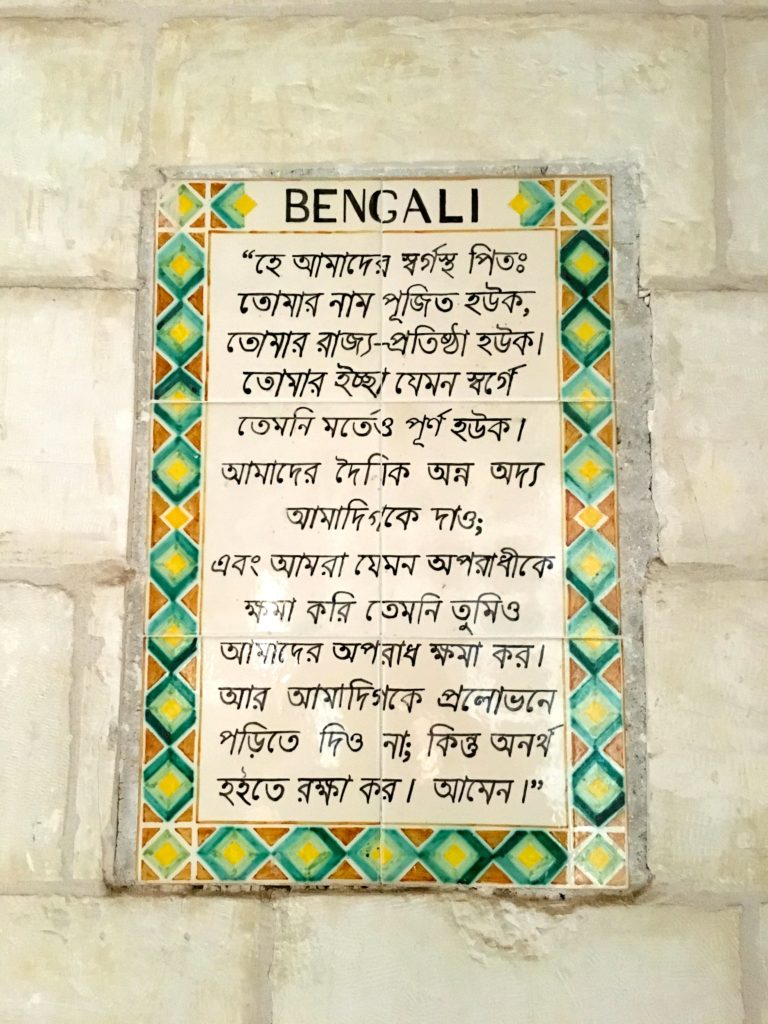 BENGALI
“হে আমাদের স্বর্গস্থ পিতঃ
তোমার নাম পূজিত হউক,
তোমার রাজ্য--প্রতিষ্ঠা হউক।
তোমার ইচ্ছা যেমন স্বর্গে
তেমনি মর্তেও পূর্ণ হউক।
আমাদের দৈনিক অন্ন অদ্য
আমাদিগকে দাও;
এবং আমরা যেমন অপরাধীকে
ক্ষমা করি তেমনি তুমিও
আমাদের অপরাধ ক্ষমা কর।
আর আমাদিগকে প্রলোভনে
পড়িতে দিও না; কিন্তু অনর্থ
হইতে রক্ষা কর। আমেন।”